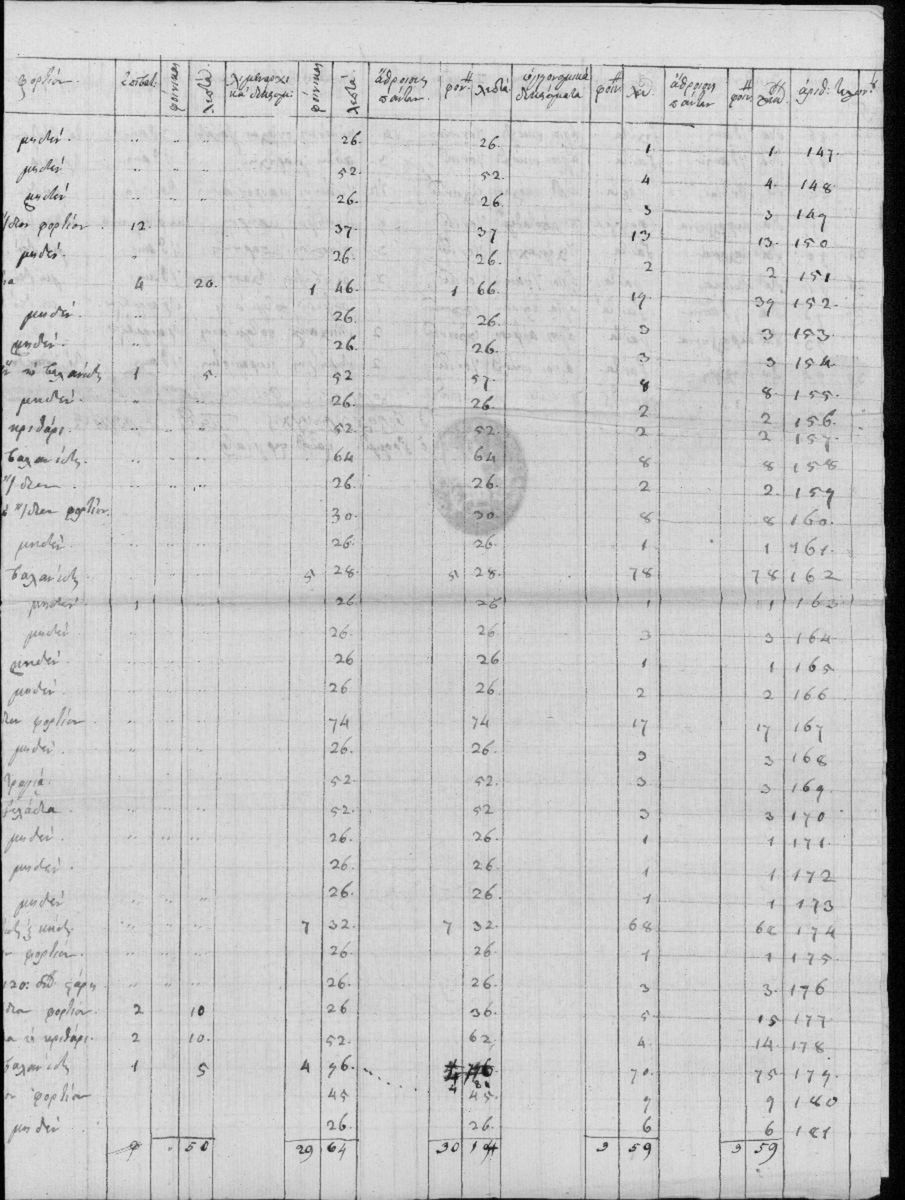 φορτίον. ἐπιβάτ. φοίνικες λεπτά λιμεναρχικά δικαιώμ. φοίνικες λεπτά. ἄθροισις πάντων. φοίν. λεπτά. ὑγιονομικά δικαιώματα φοίν: λεπ ἄθροισις πάντων φοίν: λεπ. ἀριθ:
μηδέν .. .. .. 26. 26. 1 1. 147.
μηδέν .. .. .. 52. 52. 4 4. 148.
μηδέν .. .. .. 26. 26. 3 3. 149
φορτίον . 12. .. .. 37. 37 13 13. 150
μηδέν. .. 26. 26. 2 2. 151
4 20. 1 46. 1 66. 19 39 152.
μηδέν. .. .. .. 26. 26. 3 3. 153
μηδέν. .. .. .. 26. 26. 3 3. 154.
βαλανίδι 1 5. 52 57. 8 8. 155.
μηδέν. .. .. 26. 26. 2 2. 156.
κριθάρι. .. .. .. 52. 52. 2 2. 157.
βαλανίδι. .. .. .. 64 64. 8 8 158
.. .. .. 26. 26. 2 2. 159
φορτίον. .. .. .. 30. 30. 8 8 160.
μηδέν. .. .. .. 26. 26. 1 1 161.
βαλανίδι. .. .. .. 5 28. 5 28. 78 78 162
μηδέν 1 .. .. 26 26 1 1 163
μηδέν. .. .. .. 26. 26 3 3 164
μηδέν. .. .. .. 26 26 1 1 165
μηδέν. .. .. .. 26 26. 2 2 166
φορτίον .. .. .. 74 74. 17 17 167
μηδέν. .. .. .. 26. 26. 3 3 168
.. .. .. 52. 52. 3 3 169.
.. .. .. 52. 52 3 3 170
μηδέν. .. .. .. 26. 26. 1 1 171.
μηδέν. .. .. .. 26 26. 1 1 172
μηδέν .. .. .. 26. 26. 1 1 173
.. .. .. 7 32 7 32. 68 68 174
φορτίον. .. .. .. 26. 26. 1 1 175.
120: .. .. .. 26. 26. 3 3. 176
φορτίον. 2 10 26 36. 5 15 177
κριθάρι. 2 10. 52. 62. 4 14 178
βαλανίδι 1 5 4 76 4 81 70 75 179.
φορτίον 45 45. 9 9 180
μηδέν. 26 26. 6 6 181
9 . 50 29 64 30 14 3 59 3 59